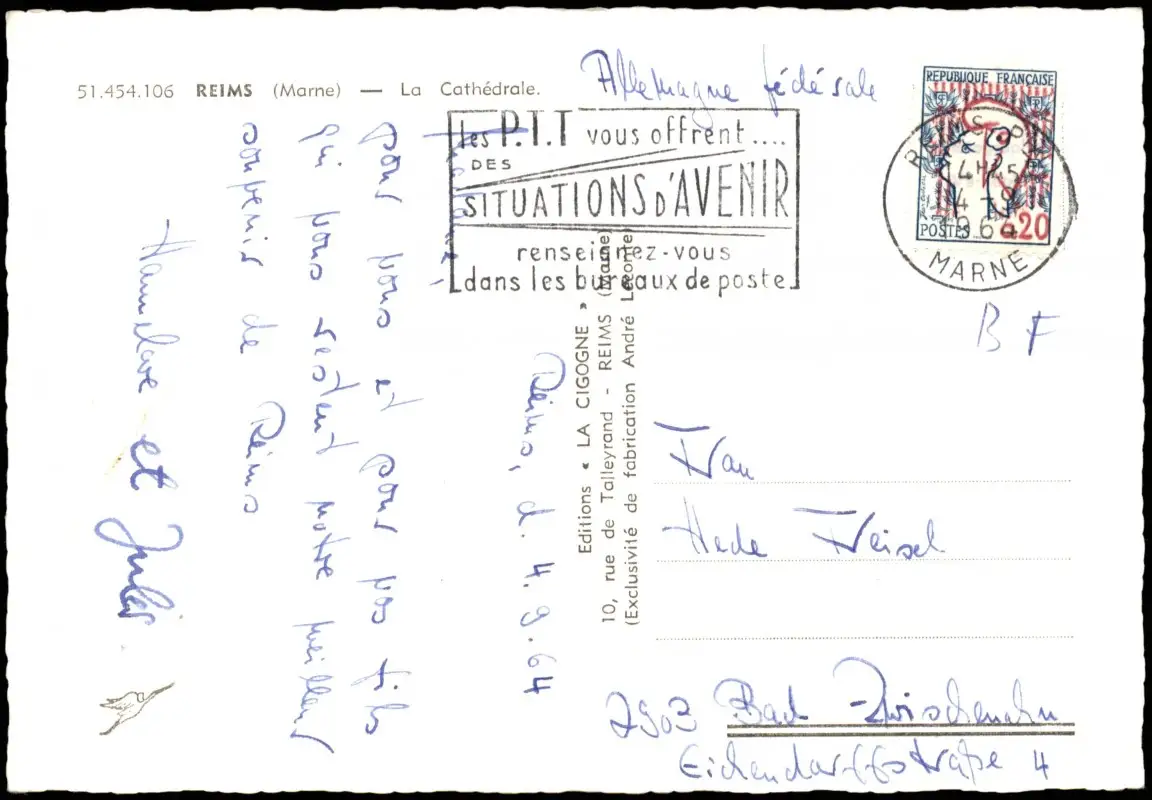 51.454.106 REIMS (Marne) — La Cathédrale.
Allemagne fédérale
REPUBLIQUE FRANÇAISE
POSTES 0,20
REIMS
14H45
4 - 9
1964
MARNE
les P.T.T vous offrent....
DES
SITUATIONS D'AVENIR
renseignez-vous
dans les bureaux de poste
Reims, d. 4.9.64
pour vous et pour vos fils
qui vous restent notre meilleur
souvenir de Reims
Hannelore et Jules.
Editions « LA CIGOGNE »
10, rue de Talleyrand - REIMS (Marne)
(Exclusivité de fabrication André Leconte)
B F
Frau
Hede Weisel
2903 Bad Zwischenahn
Eichendorffstraße 4